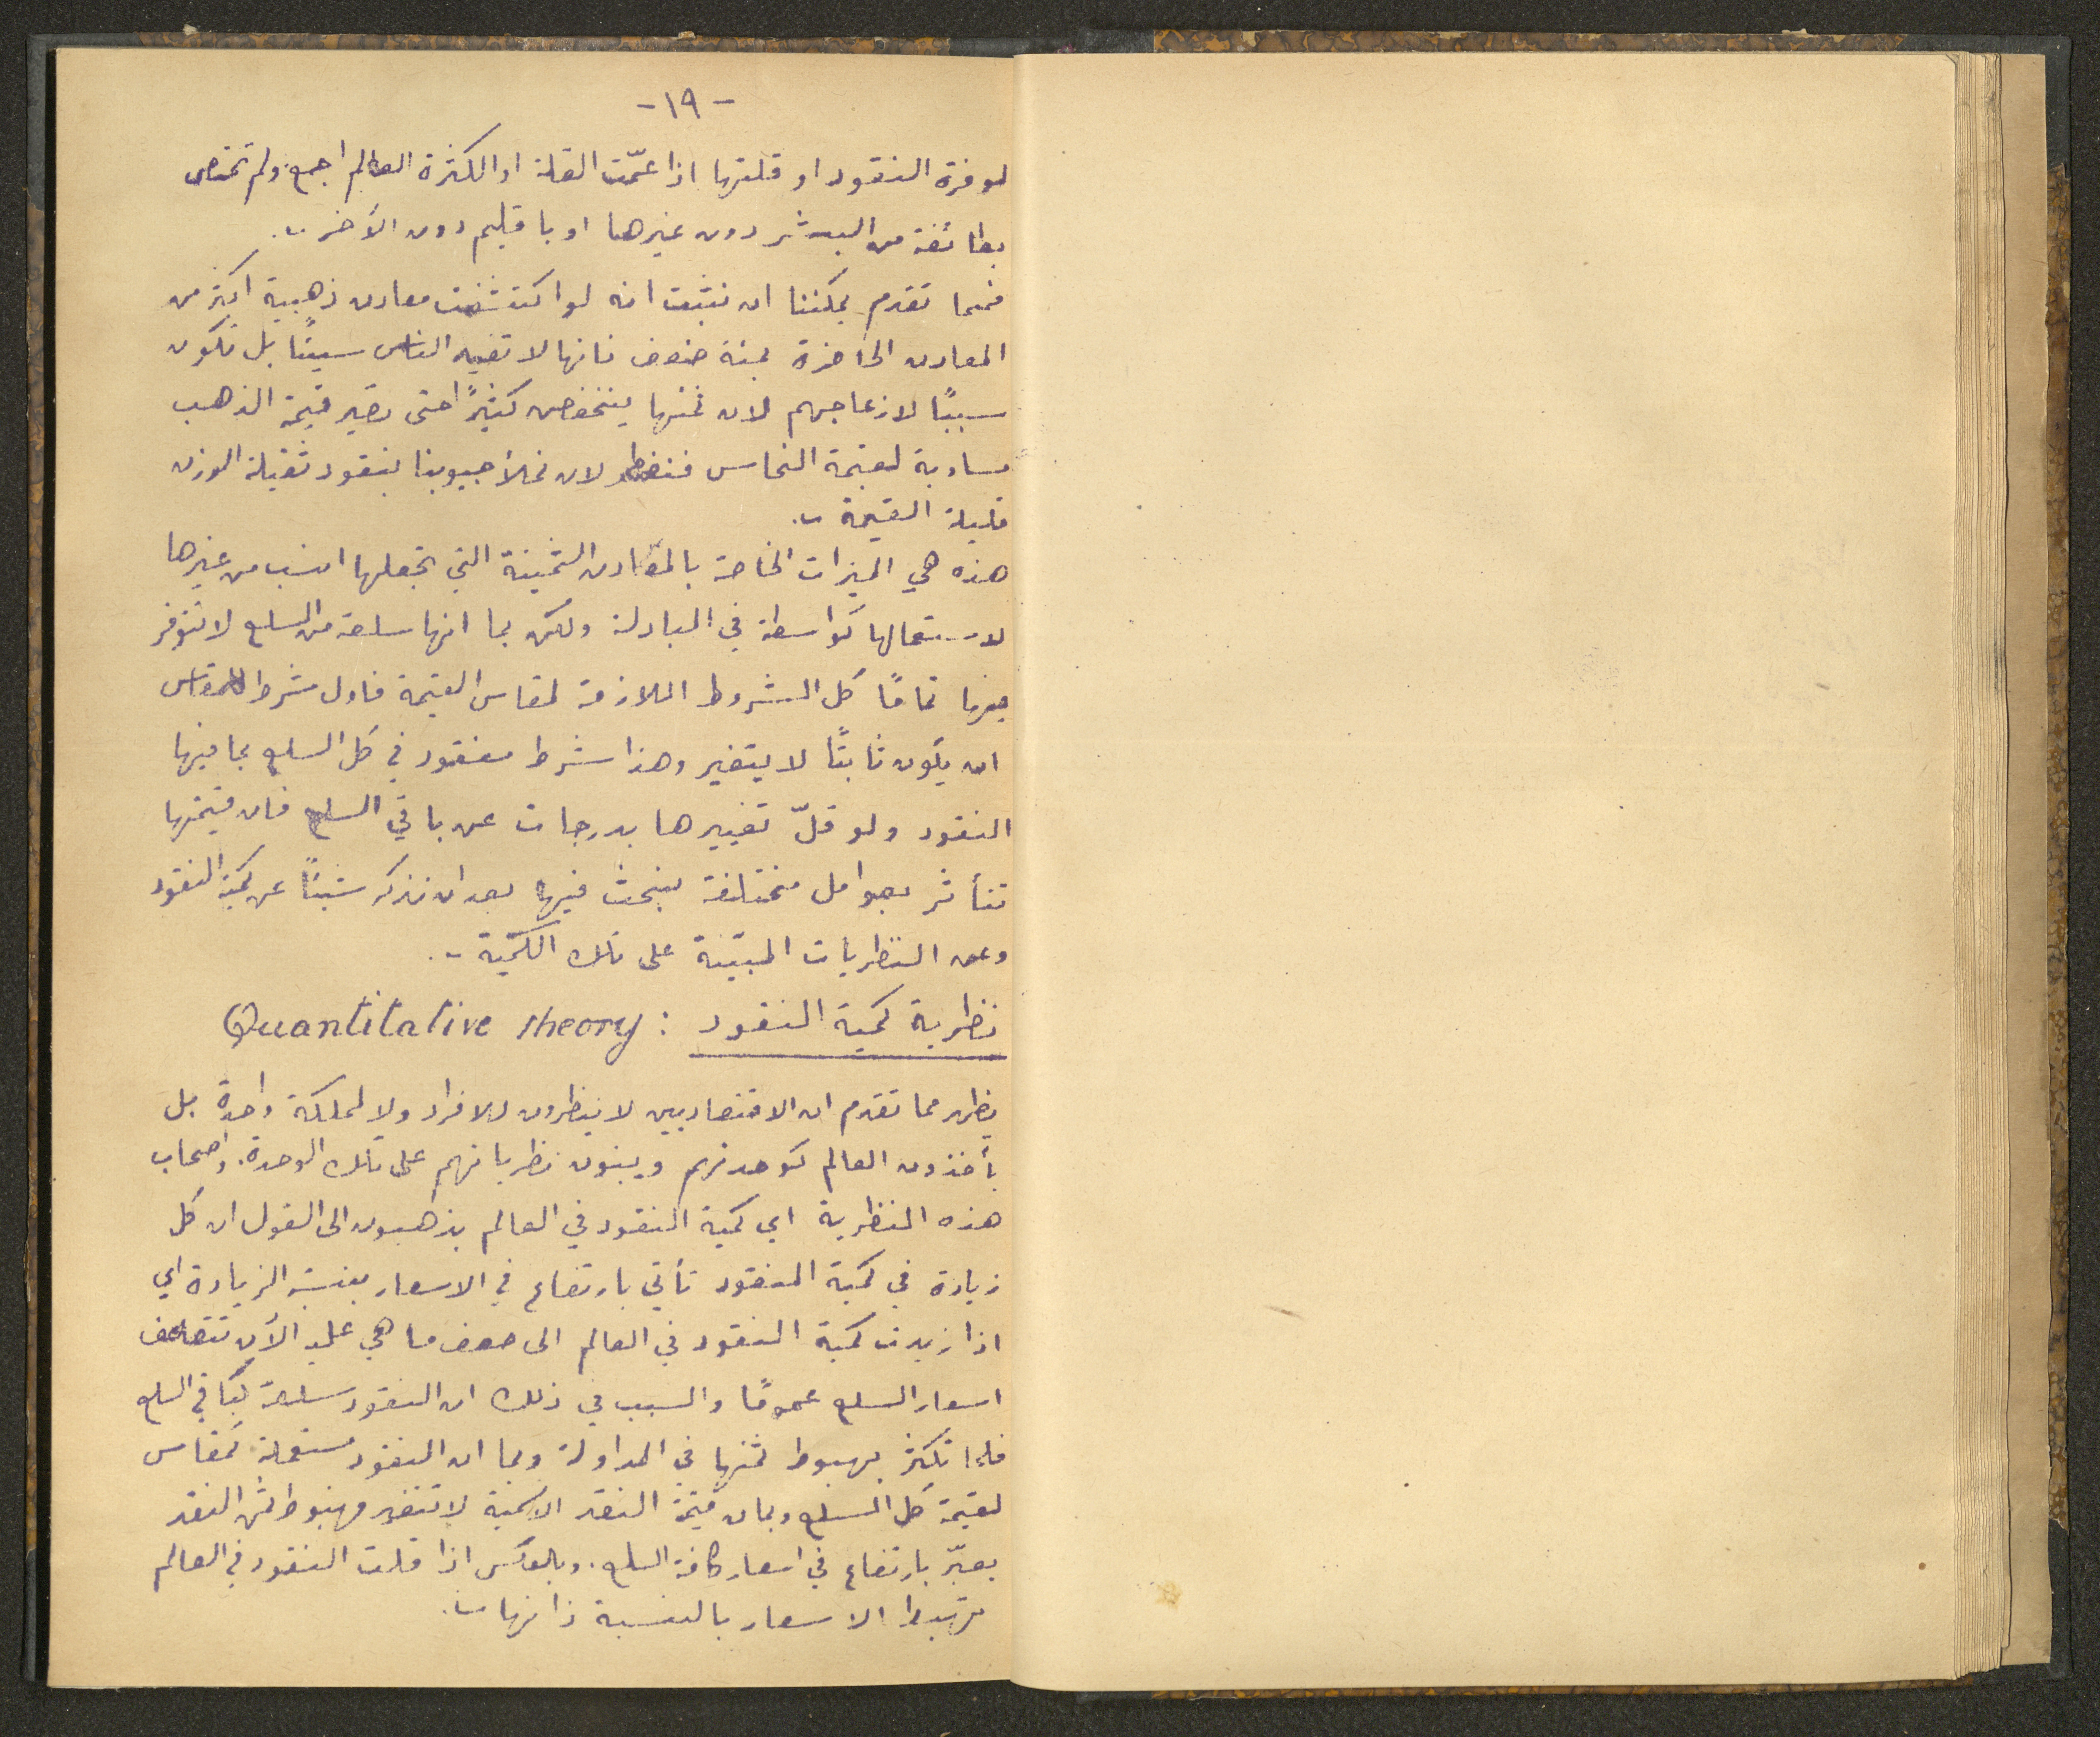 -١٩-
لوفرة النقود او قلتها اذا عمّت القلة او الكثرة العالم اجمع ولم تختص
بطائفة من البشر دون غيرها او باقليم دون الآخر .
فمما تقدم يمكننا ان نثبت انه لو اكتشفت معادن ذهبية اكثر من
المعادن الحاضرة بمئة ضعف فانها لا تفيد الناس شيئًا بل تكون
سببًا لازعاجهم لان ثمنها ينخفض كثيرًا حتى تصير قيمة الذهب
مساوية لقيمة النحاس فنضطر لان نملأ جيوبنا بنقود ثقيلة الوزن
قليلة القيمة .
هذه هي الميزات الخاصة بالمعادن الثمينة التي تجعلها انسب من غيرها
لاستعمالها كواسطة في المبادلة ولكن بما انها سلعة من السلع لا تتوفر
فيها تمامًا كل الشروط اللازمة لمقاس القيمة فاول شرط للمقاس
ان يكون ثابتًا لا يتغير وهذا شرط مفقود في كل السلع بما فيها
النقود ولو قلّ تغييرها بدرجات عن باقي السلع فان قيمتها
تتأثر بعوامل مختلفة نبحث فيها بعد ان نذكر شيئًا عن كمية النقود
وعن النظريات المبنية على تلك الكمية .
نظرية كمية النقود : Quantitative theory
يظهر مما تقدم ان الاقتصاديين لا ينظرون للافراد ولا لمملكة واحدة بل
يأخذون العالم كوحدتهم ويبنون نظرياتهم على تلك الوحدة. واصحاب
هذه النظرية اي كمية النقود في العالم يذهبون الى القول ان كل
زيادة في كمية النقود تأتي بارتفاع في الاسعار بنسبة الزيادة اي
اذا زيدت كمية النقود في العالم الى ضعف ما هي عليه الآن تتضاعف
اسعار السلع عمومًا والسبب في ذلك ان النقود سلعة كباقي السلع
فلما تكثر يهبط ثمنها في المداولة وبما ان النقود مستعملة كمقاس
لقيمة كل السلع وبما ان قيمة النقد الاسمية لا تتغير فهبوط ثمن النقد
يعبّر بارتفاع في اسعار كافة السلع. وبالعكس اذا قلت النقود في العالم
تهبط الاسعار بالنسبة ذاتها .